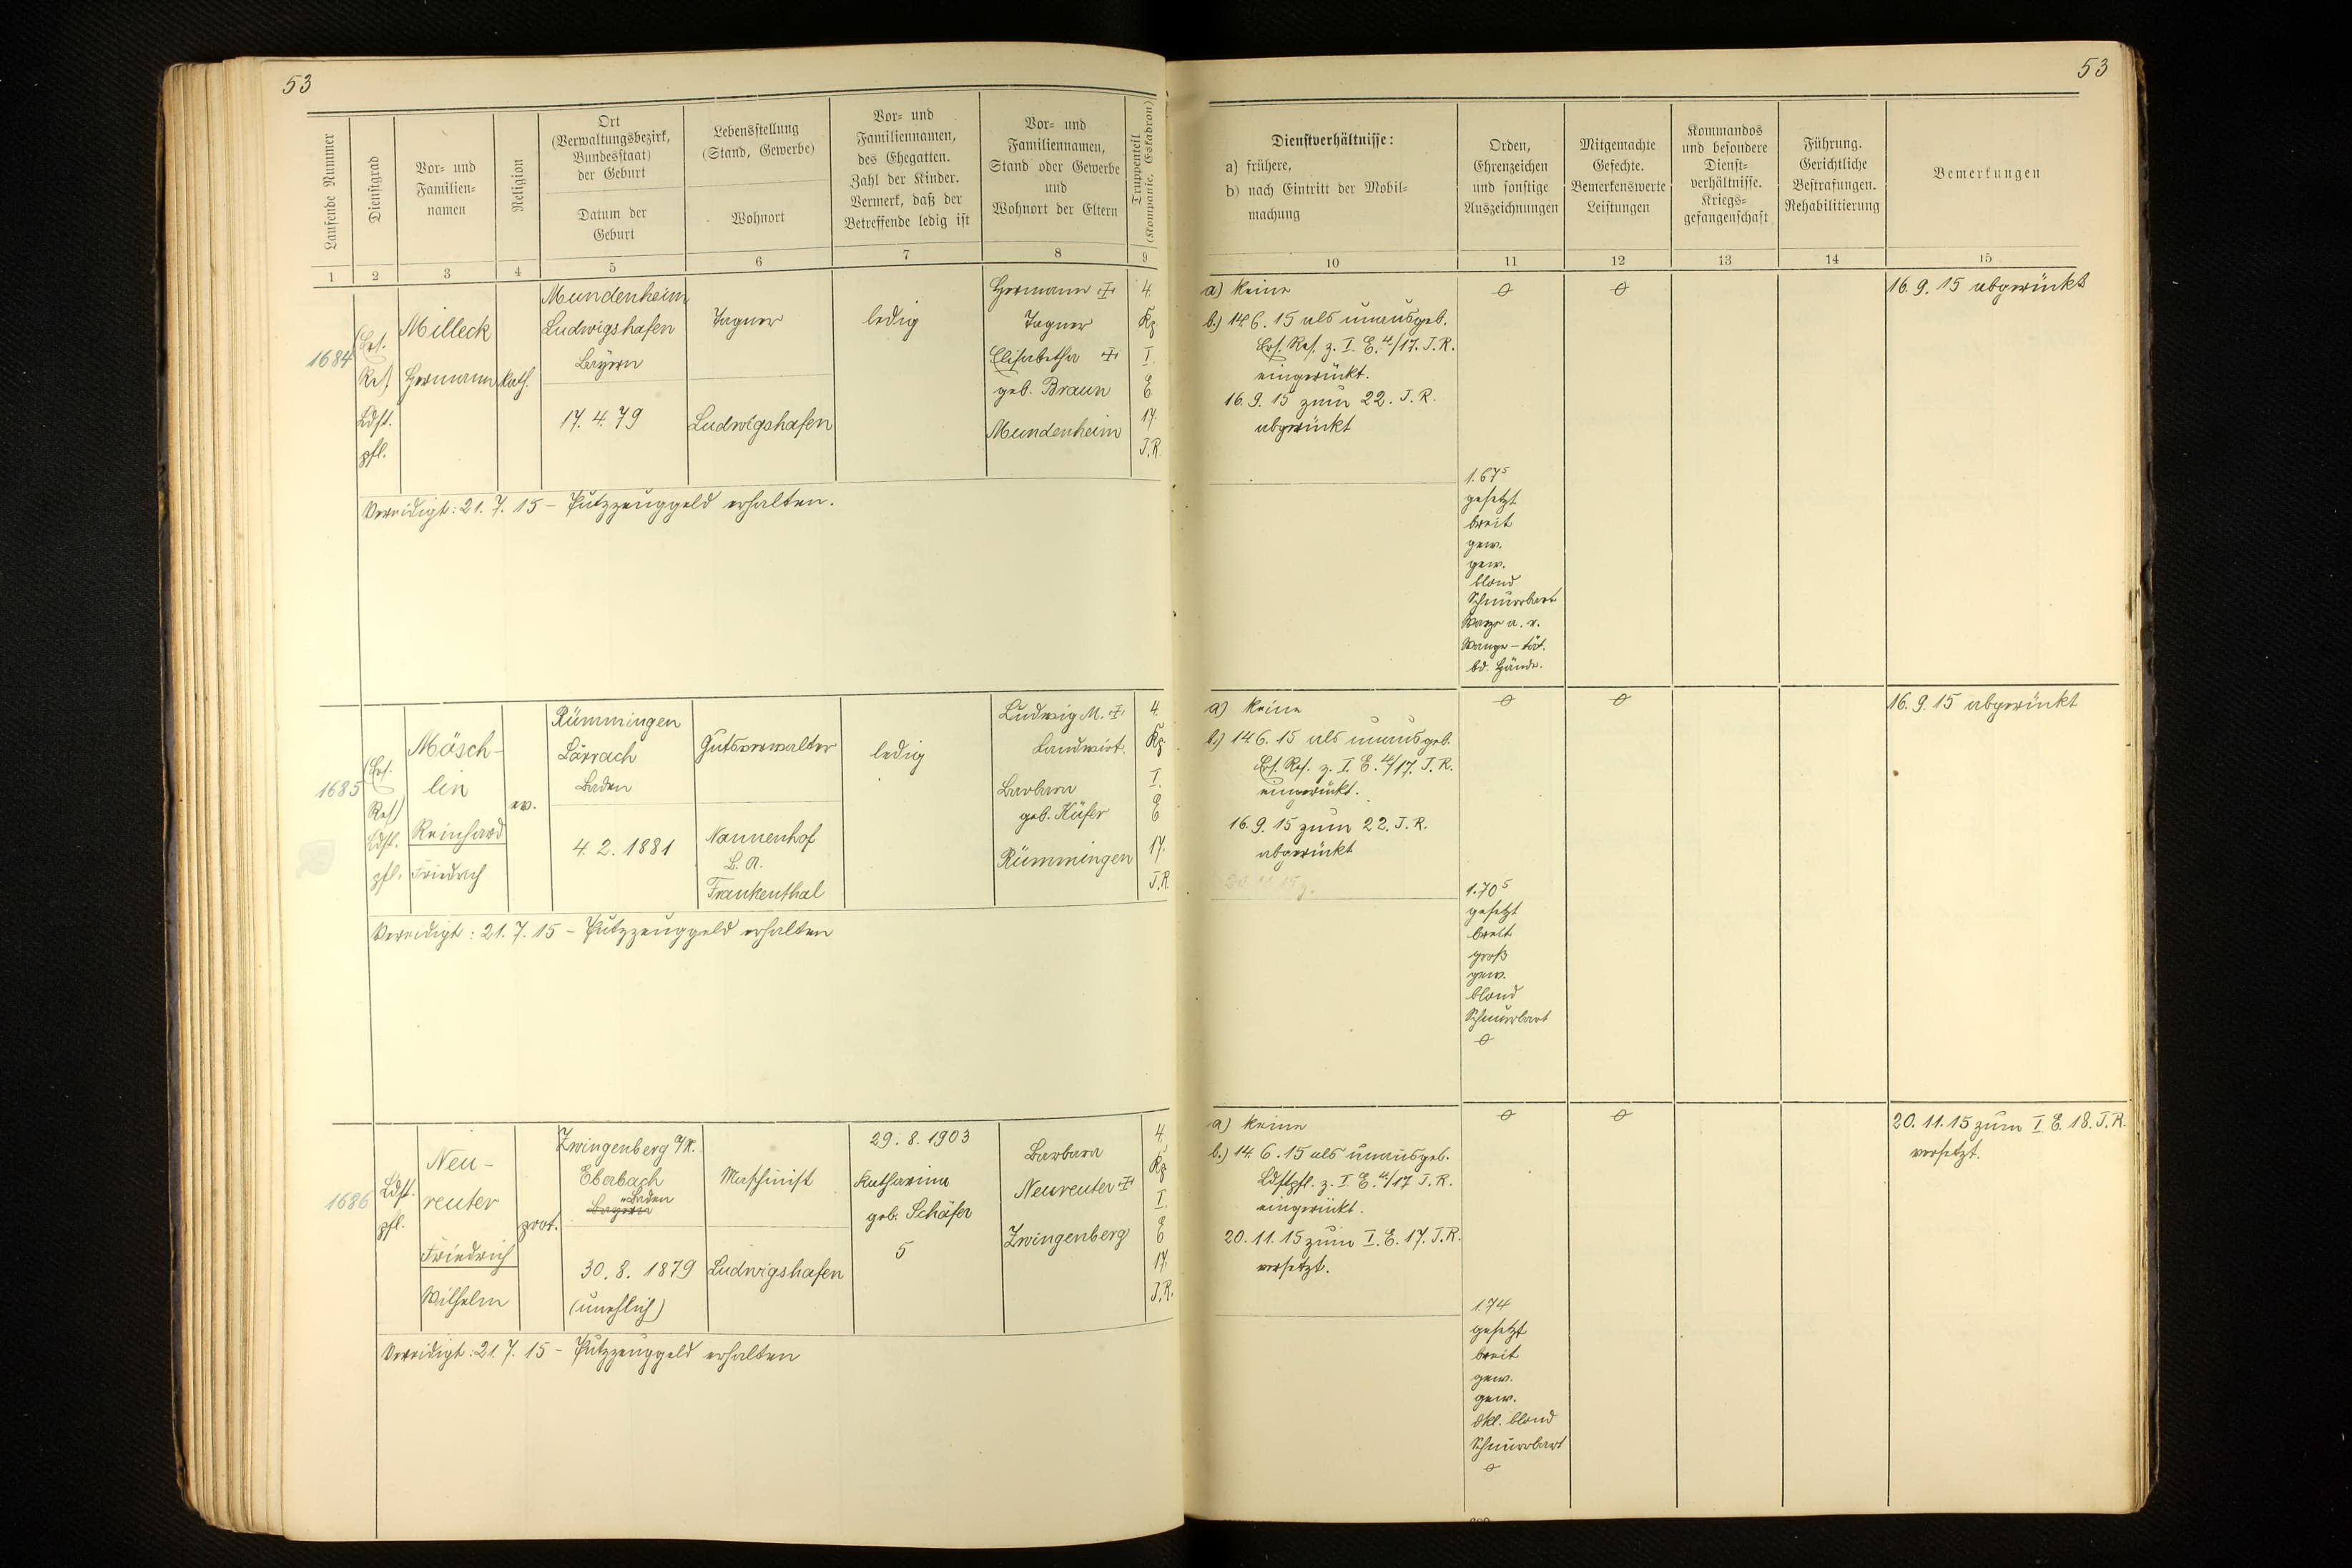 53
Laufende Nummer
Dienstgrad
Vor= und
Familien=
namen
Religion
Ort
(Verwaltungsbezirk,
Bundesstaat)
der Geburt
Datum der
Geburt
Lebensstellung
(Stand, Gewerbe)
Wohnort
Vor= und
Familiennamen,
des Ehegatten.
Zahl der Kinder.
Vermerk, daß der
Betreffende ledig ist
Vor= und
Familiennamen,
Stand oder Gewerbe
und
Wohnort der Eltern
Truppenteil
(Kompanie, Eskadron)
1 2 3 4 5 6 7 8 9
1684
(Ers.
Res)
Ldst.
pfl.
Milleck
Hermann
kath.
Mundenheim
Ludwigshafen
Bayern
17. 4. 79
Tagner
Ludwigshafen
ledig
Hermann
Tagner
Elisabetha
geb. Braun
Mundenheim
4.
Kp
I.
E
17.
J.R.
Vereidigt: 21. 7. 15 – Putzzeuggeld erhalten.
1685
(Ers.
Res)
Ldst.
pfl.
Mösch-
lin
Reinhard
Friedrich
ev.
Rümmingen
Lörrach
Baden
4. 2. 1881
Gutsverwalter
Nonnenhof
B. A.
Frankenthal
ledig
Ludwig M.
Landwirt.
Barbara
geb. Küfer
Rümmingen
4.
Kp.
I.
E
17.
J.R.
Vereidigt: 21. 7. 15 – Putzzeuggeld erhalten
1686
Ldst.
pfl.
Neu-
reuter
Friedrich
Wilhelm
prot.
Zwingenberg a/N.
Eberbach
Baden
Bayern
30. 8. 1879
(unehlich)
Maschinist
Ludwigshafen
29. 8. 1903
Katharina
geb. Schäfer
5
Barbara
Neureuter
Zwingenberg
4.
Kp.
I.
E
17.
J.R.
Vereidigt: 21. 7. 15 – Putzzeuggeld erhalten
53
Dienstverhältnisse:
a) frühere,
b) nach Eintritt der Mobil=
machung
Orden,
Ehrenzeichen
und sonstige
Auszeichnungen
Mitgemachte
Gefechte.
Bemerkenswerte
Leistungen
Kommandos
und besondere
Dienst=
verhältnisse.
Kriegs=
gefangenschaft
Führung.
Gerichtliche
Bestrafungen.
Rehabilitierung
Bemerkungen
10 11 12 13 14 15
a) keine
b.) 14.6. 15 als unausgeb.
Ers. Res. z. I. E. 4/17. J. R.
eingerückt.
16. 9. 15 zum 22. J. R.
abgerückt
1.67⁵
gesetzt
breit
gew.
gew.
blond
Schnurrbart
Warze a. r.
Wange – tät.
bd. Hände.
16. 9. 15 abgerückt
a) keine
b.) 14.6. 15 als unausgeb.
Ers. Res. z. I. E. 4/17. J. R.
eingerückt.
16. 9. 15 zum 22. J. R.
abgerückt
1.70⁵
gesetzt
breit
groß
gew.
blond
Schnurrbart
16. 9. 15 abgerückt
a) keine
b.) 14. 6. 15 als unausgeb.
Ldstpfl. z. I. E. 4/17 J. R.
eingerückt.
20. 11. 15 zum I. E. 17. J. R.
versetzt.
1.74
gesetzt
breit
gew.
gew.
dkl. blond
Schnurrbart
20. 11. 15 zum I. E. 18. J. R.
versetzt.